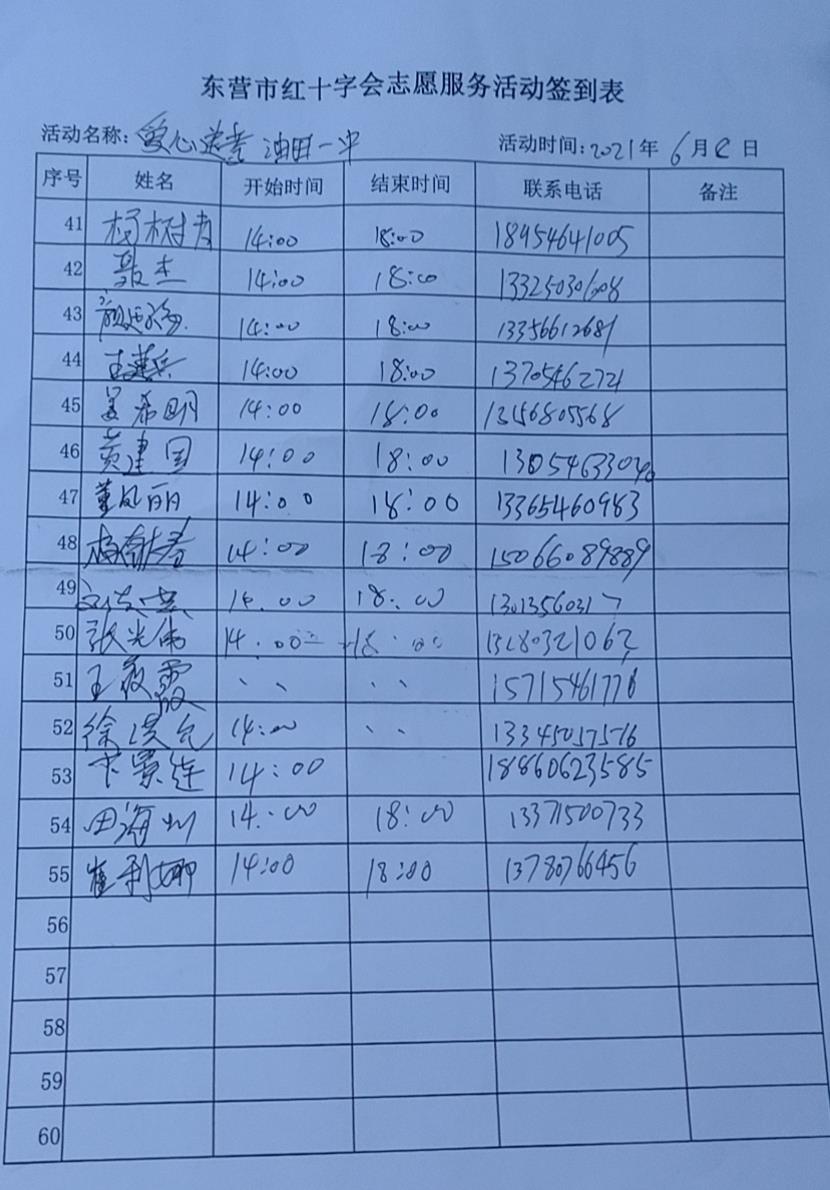 东营市红十字会志愿服务活动签到表
活动名称: 爱心送考 油田一中 活动时间: 2021年 6月 日
序号 姓名 开始时间 结束时间 联系电话 备注
41 杨树 14:00 18:00 18954641005
42 聂杰 14:00 18:00 13325030608
43 14:00 18:00 13356612681
44 王建兵 14:00 18:00 13705462721
45 姜希明 14:00 18:00 13156805568
46 黄建国 14:00 18:00
47 董凤丽 14:00 18:00 13365460983
48 14:00 18:00 15066089889
49 14.00 18:00 13013560317
50 张光伟 14.00 18:00
51 王爱霞 、、 、、 15715461778
52 徐洪允 14:00 、、 13345057576
53 卞景连 14:00 18860623585
54 田海川 14:00 18:00 13371500733
55 崔利娜 14:00 18:00 13780766456
56
57
58
59
60